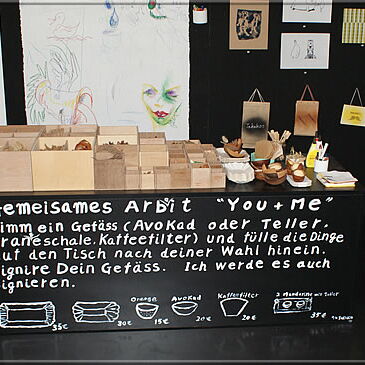 Gemeisames Arbit "You + Me"
Nimm ein Gefäss (Avokad oder Teller,
Oraneschale, Kaffeefilter) und fülle die Dinge
auf den Tisch nach deiner Wahl hinein.
Signire Dein Gefäss. Ich werde es auch
signieren.
Orange Avokad Kaffeefilter 2 Mandarine mit Teller
35€ 30€ 15€ 20€ 20€ 35€